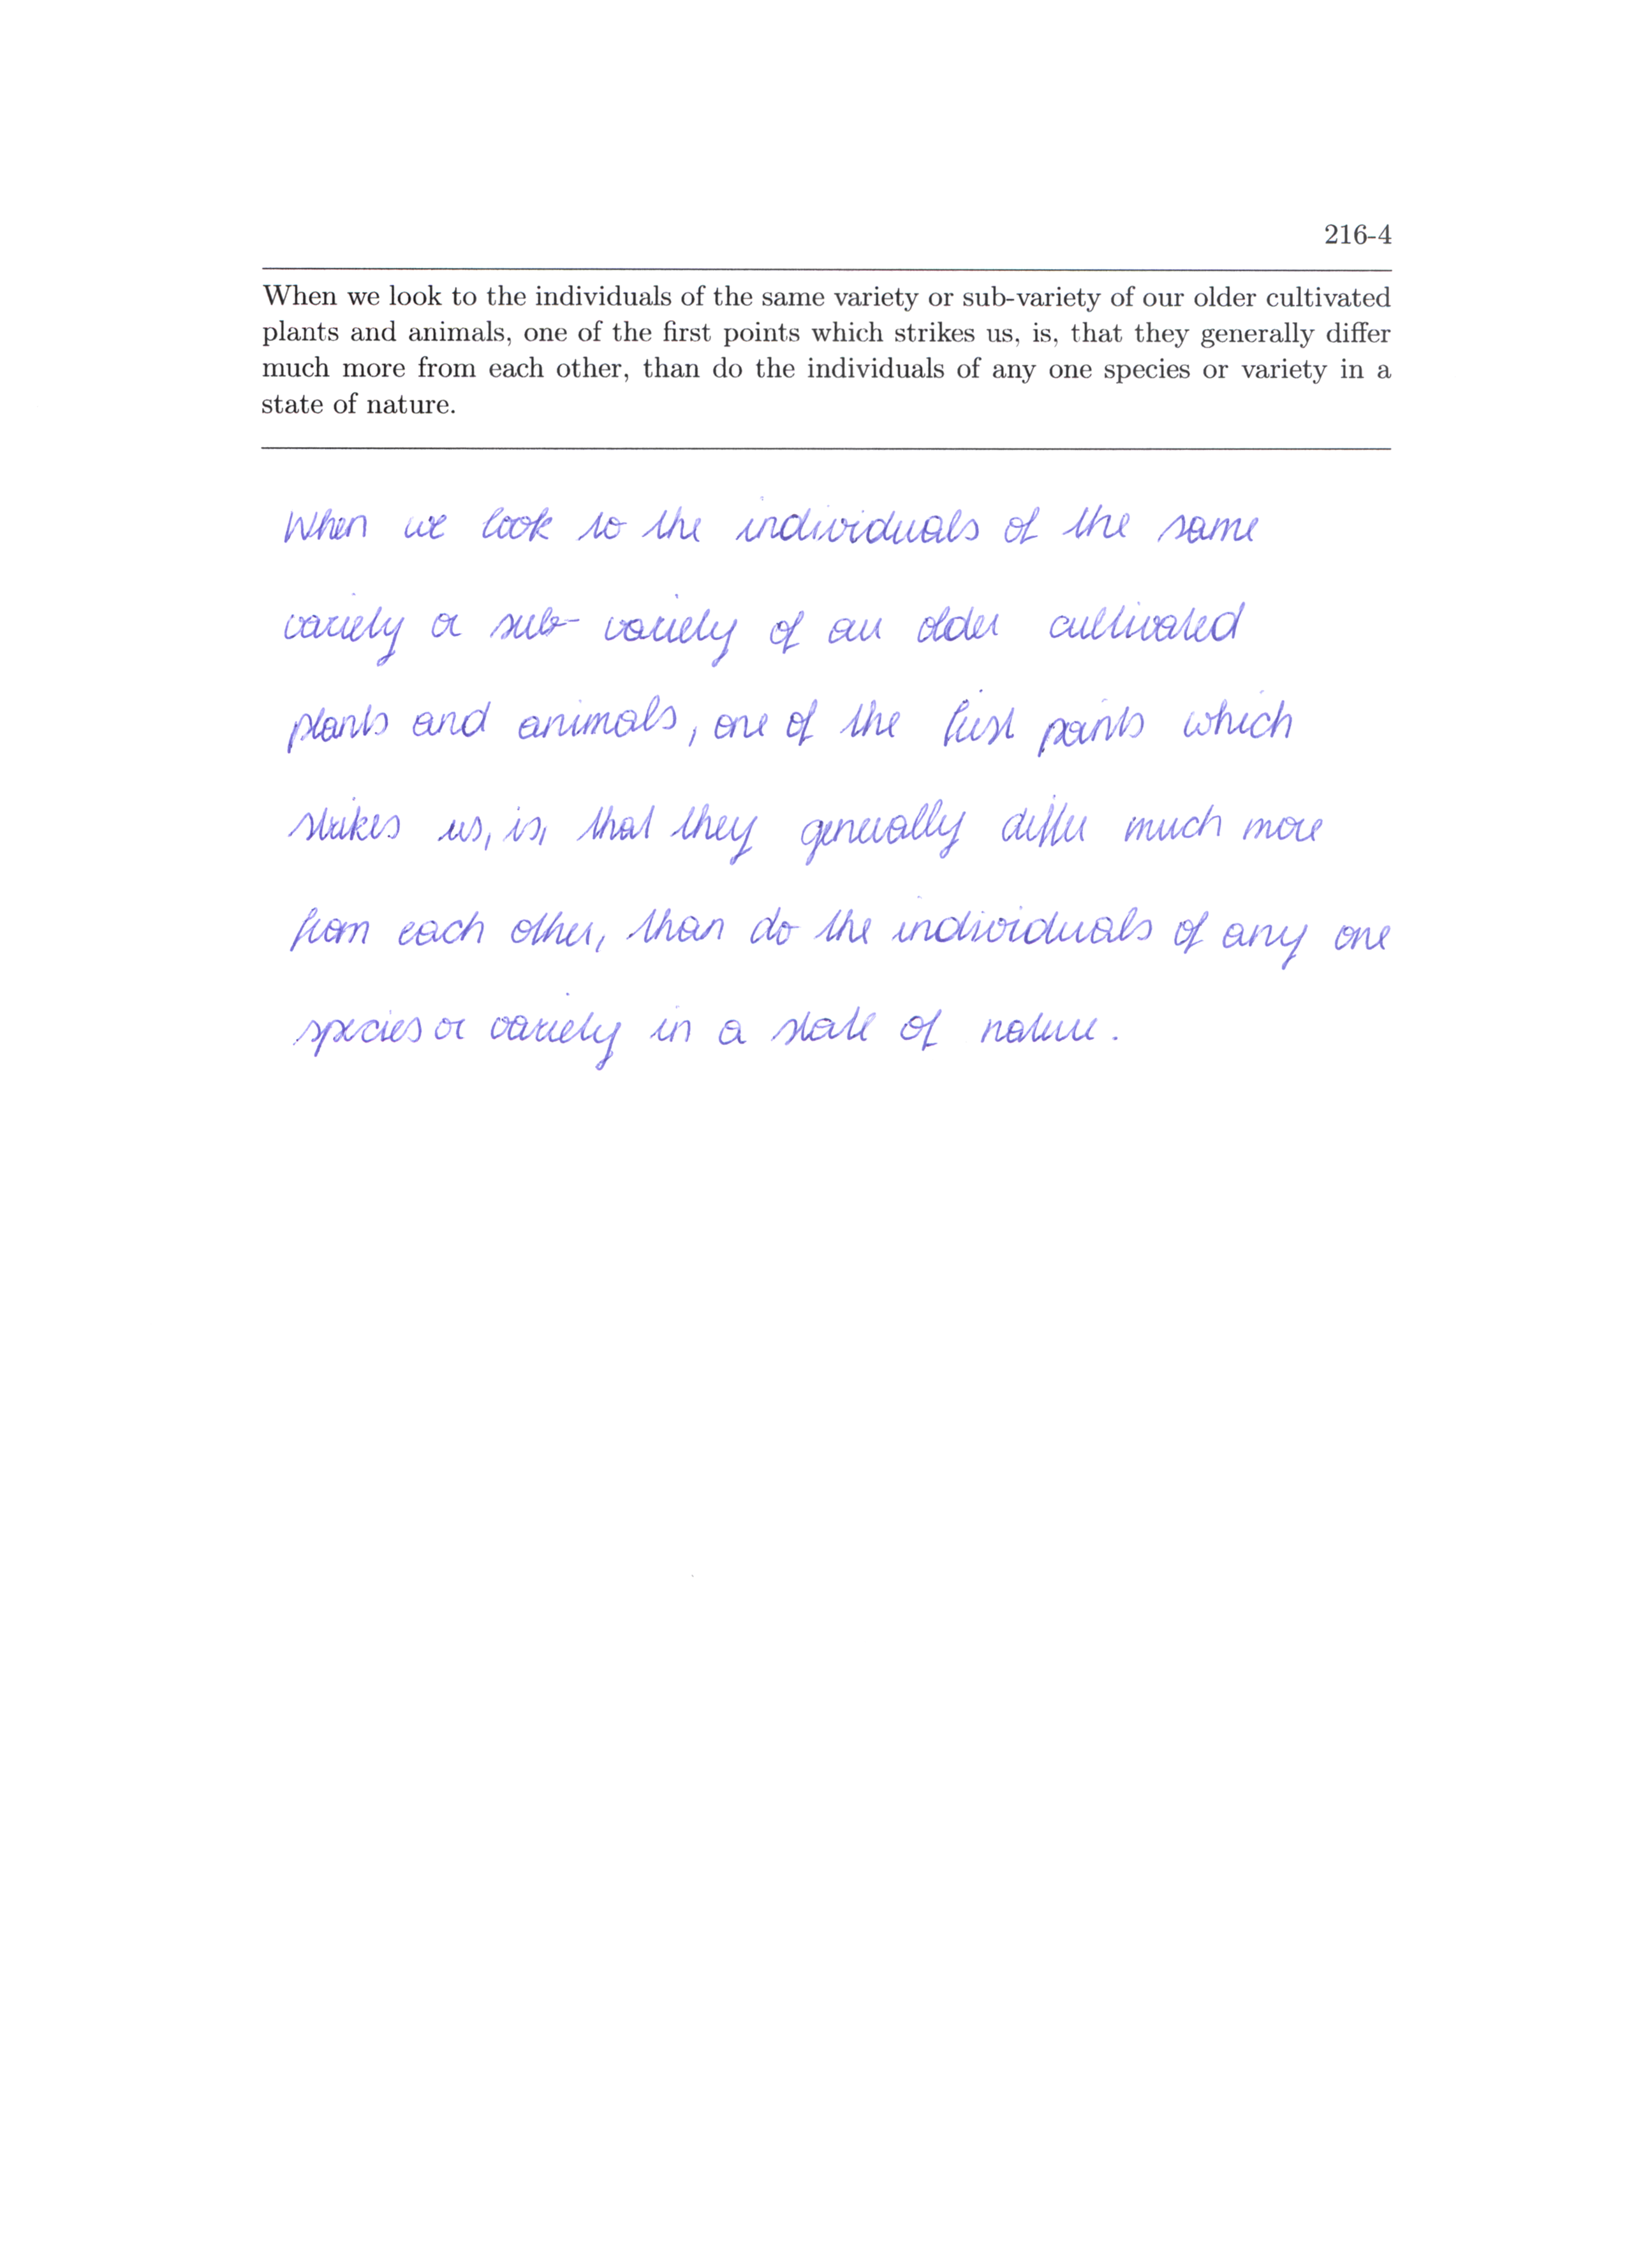 216-4
When we look to the individuals of the same variety or sub-variety of our older cultivated
plants and animals, one of the first points which strikes us, is, that they generally differ
much more from each other, than do the individuals of any one species or variety in a
state of nature.
When we look to the individuals of the same
variety or sub-variety of our older cultivated
plants and animals, one of the first points which
strikes us, is, that they generally differ much more
from each other, than do the individuals of any one
species or variety in a state of nature.